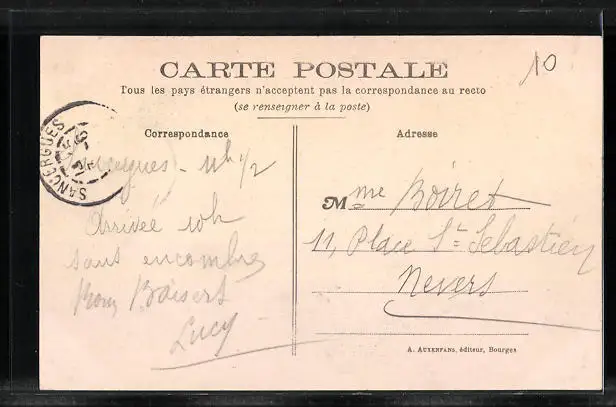 10
CARTE POSTALE
Tous les pays étrangers n'acceptent pas la correspondance au recto
(se renseigner à la poste)
Correspondance
Adresse
SANCERGUES
11h 1/2
Arrivée 10h
sans encombre
Bons Baisers
Lucy
Mme Boiret
11, Place St Sébastien
Nevers
A. AUXENFANS, éditeur, Bourges